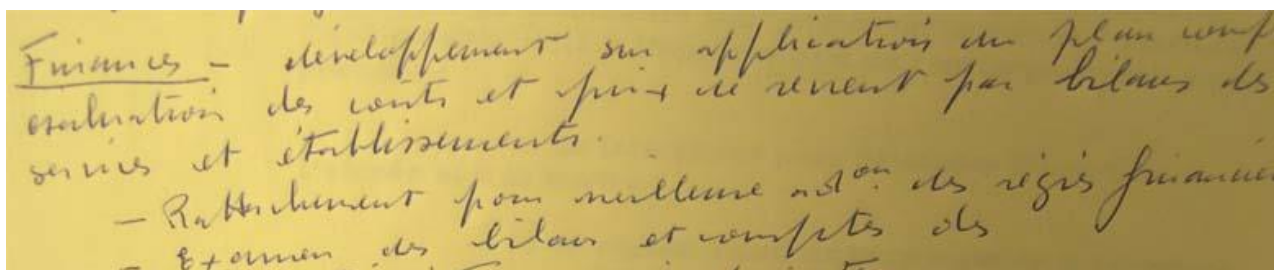 Finances - développement sur application du plan comp
evaluation des couts et prix de revient par bilans des
services et établissements.
- Rattachement pour meilleure ad^on des régies financier
Examen des bilans et comptes des